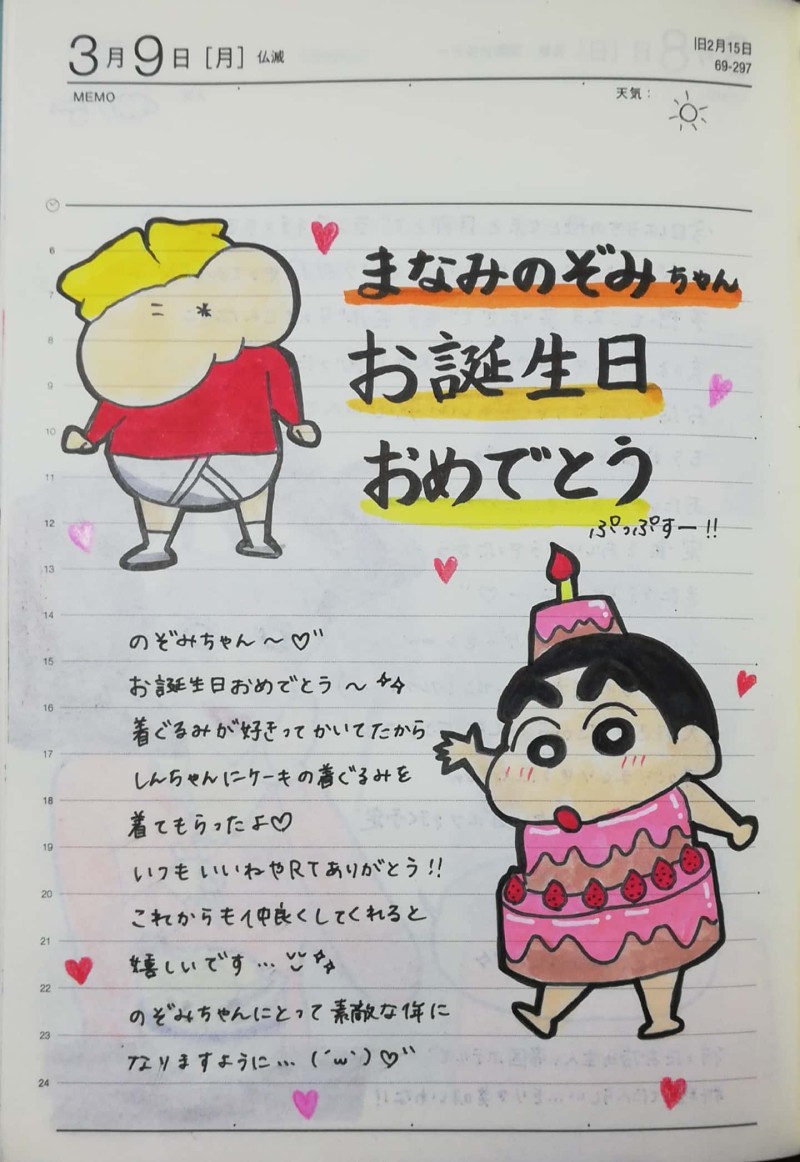 3月9日 [月] 仏滅
旧2月15日
69-297
MEMO
天気：
6
7
8
9
10
11
12
13
14
15
16
17
18
19
20
21
22
23
24
まなみのぞみちゃん
お誕生日
おめでとう
ぷっぷすー!!
のぞみちゃん～♡"
お誕生日おめでとう～
着ぐるみが好きってかいてたから
しんちゃんにケーキの着ぐるみを
着てもらったよ♡
いつもいいねやRTありがとう!!
これからも仲良くしてくれると
嬉しいです…
のぞみちゃんにとって素敵な1年に
なりますように…(´ω`)♡"